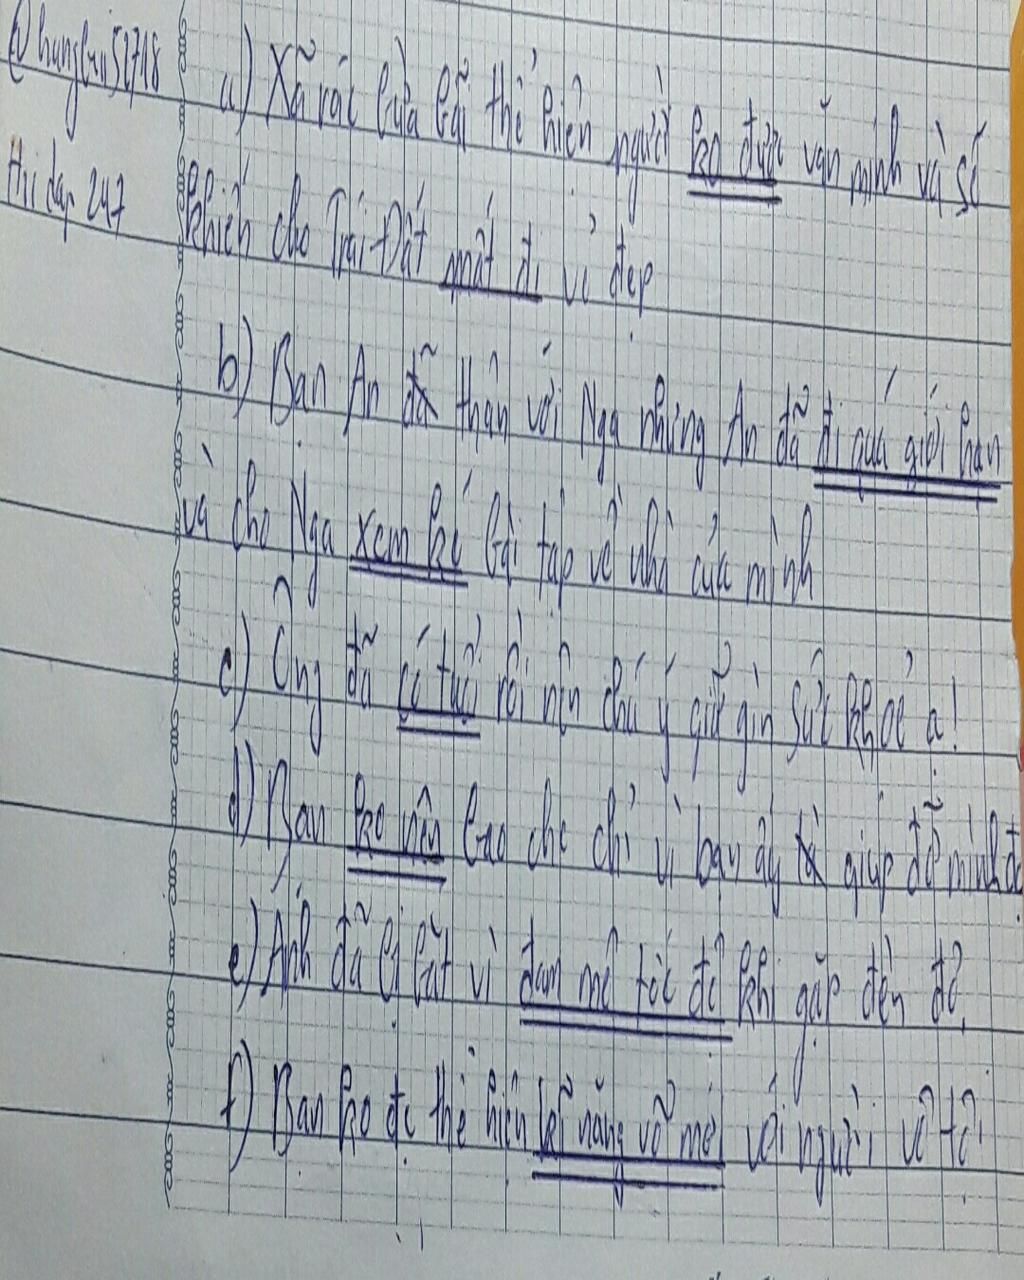 a) Xã rác bừa bãi thể hiện người ko được văn minh và sẽ
Hỏi đáp 247
khiến cho Trái Đất mất đi vẻ đẹp
b) Bạn An thân với Nga nhưng An đã đi quá giới hạn
và cho Nga xem ké bài tập về nhà của mình
c) Ông đã có tuổi rồi nên chú ý giữ gìn sức khoẻ ạ!
d) Bạn ko nên bao che chỉ vì bạn ấy giúp đỡ mình
e) Anh đã bị bắt vì đam mê tốc độ khi gặp đèn đỏ.
f) Bạn ko đc thể hiện kĩ năng võ mồm với người vô tội